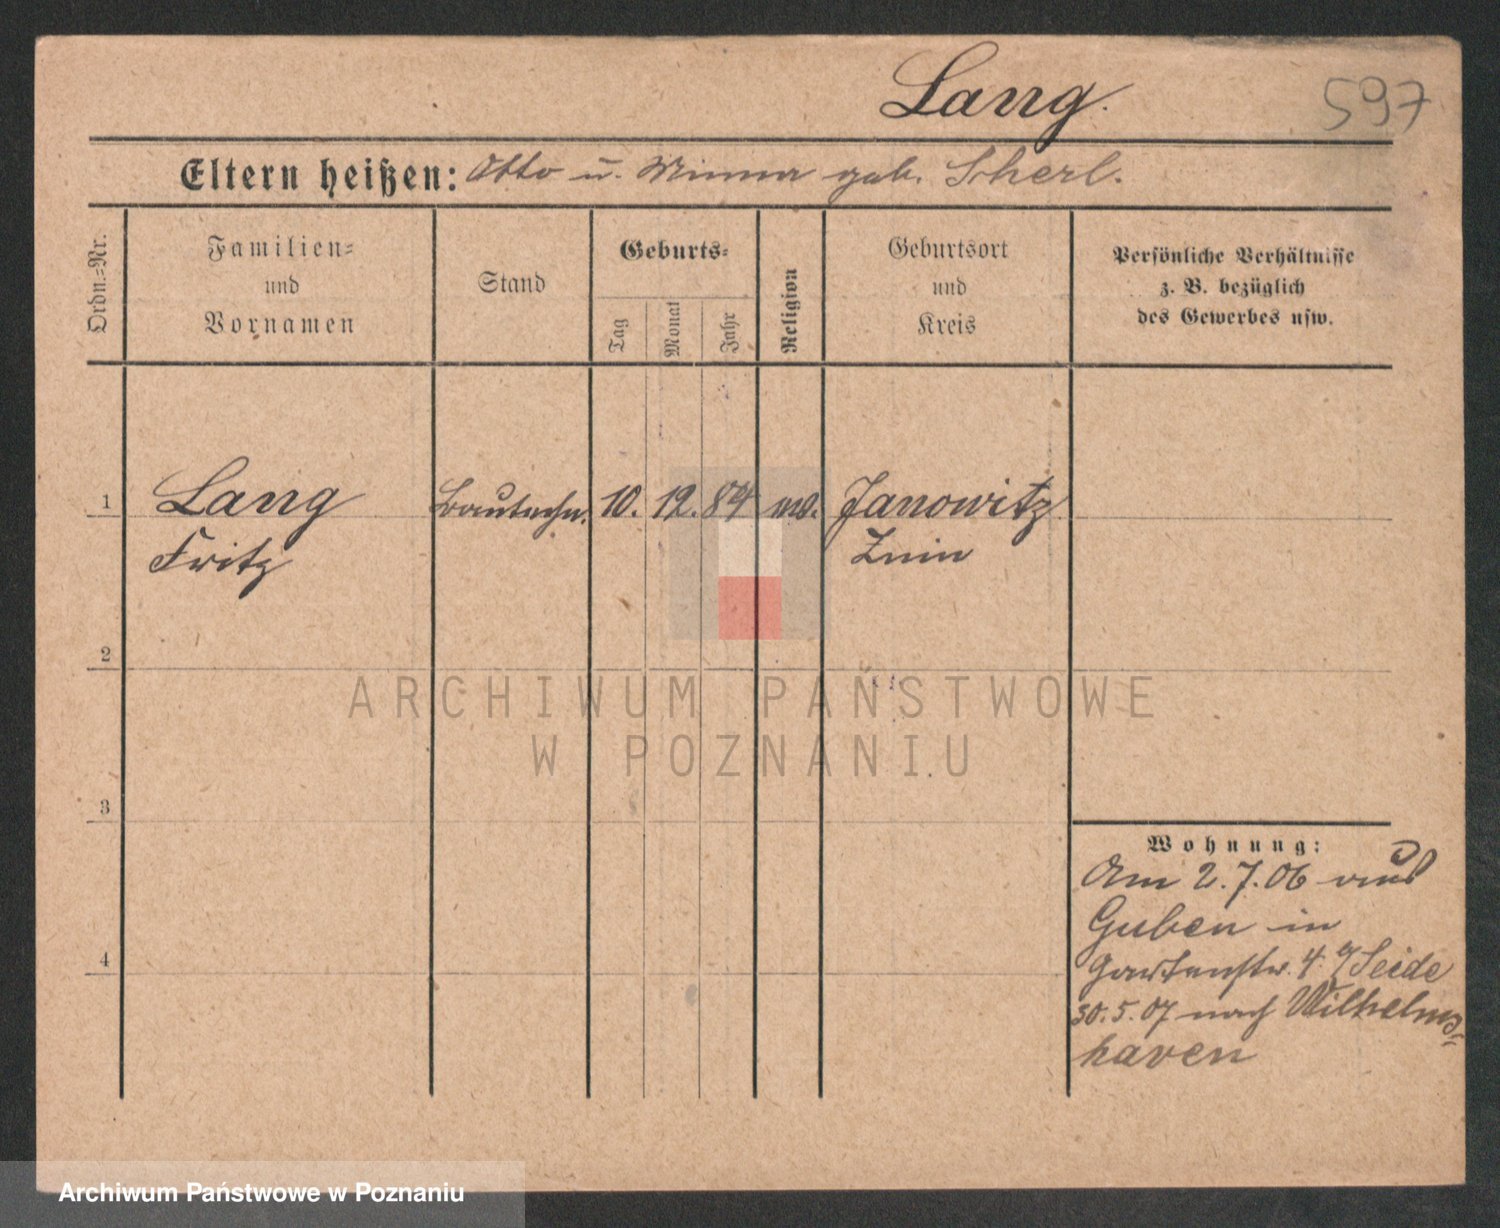 Lang.
597
Eltern heißen: Otto u. Minna geb. Scherl.
Ordn.=Nr.
Familien=
und
Vornamen
Stand
Geburts=
Tag
Monat
Jahr
Religion
Geburtsort
und
Kreis
Persönliche Verhältnisse
z. B. bezüglich
des Gewerbes usw.
1
Lang Bautechn. 10. 12. 84 ev. Janowitz
Fritz Znin
2
3
4
Wohnung:
Am 2.7.06 aus
Guben in
Gartenstr. 4 Seide
30.5.07 nach Wilhelms=
haven
ARCHIWUM PAŃSTWOWE
W POZNANIU
Archiwum Państwowe w Poznaniu